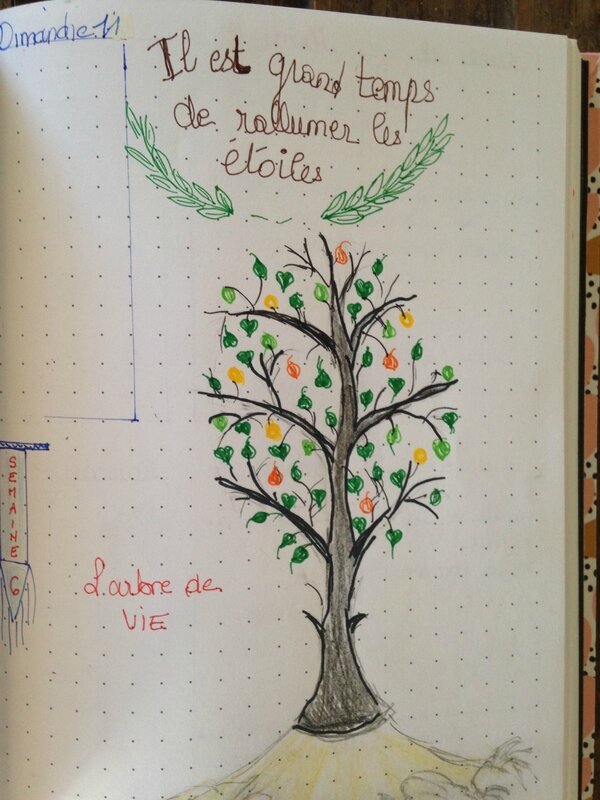 Dimanche 11
Il est grand temps
de rallumer les
étoiles
SEMAINE
6
L'arbre de
VIE